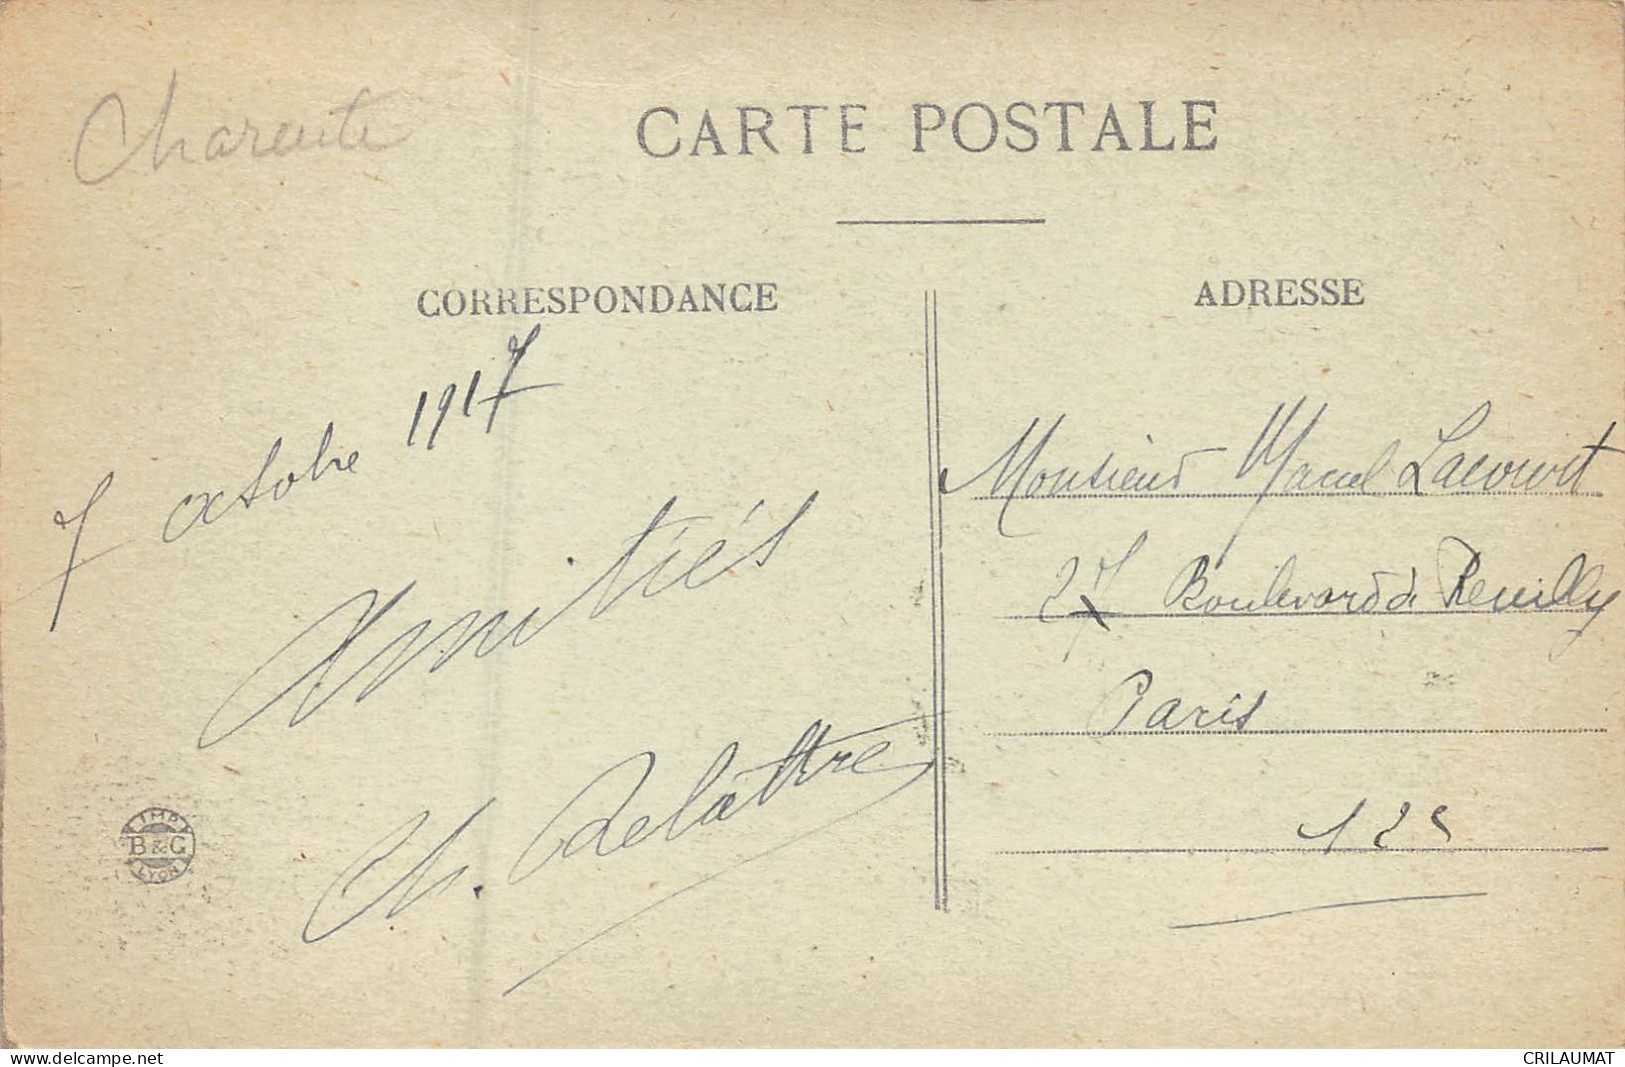 Charente
CARTE POSTALE
CORRESPONDANCE
ADRESSE
7 octobre 1917
Amitiés
Ch. Delattre
IMP
B & G
LYON
Monsieur Marcel Lacourt
27 Boulevard de Reuilly
Paris
12e
www.delcampe.net
CRILAUMAT